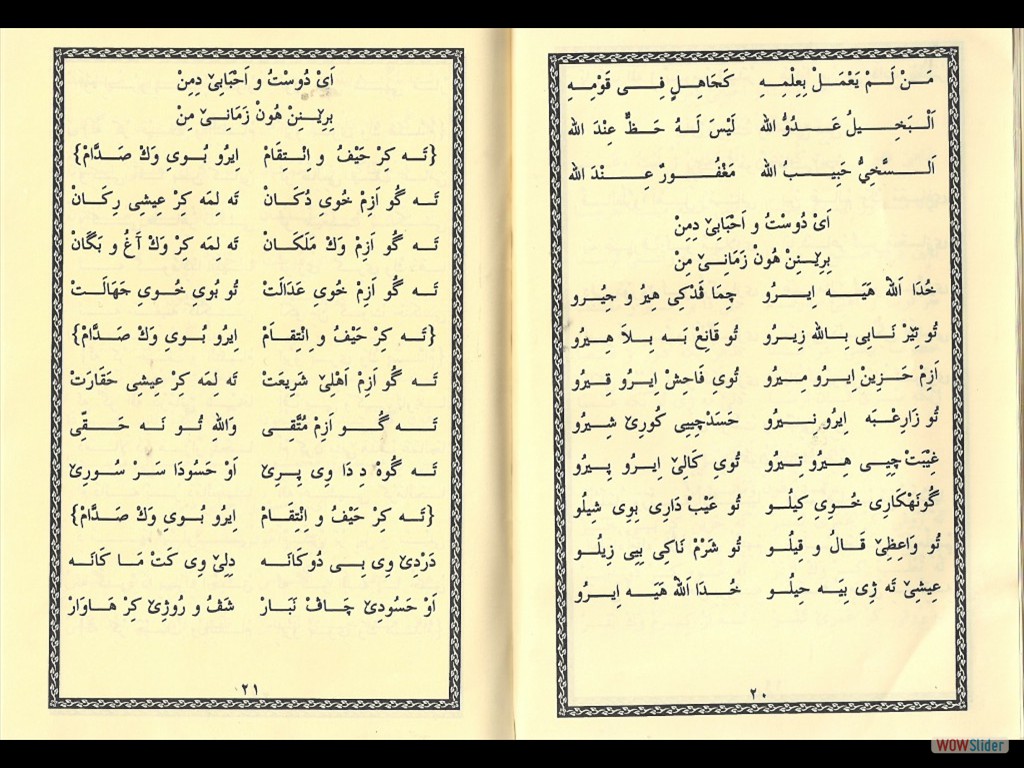 مَنْ لَـمْ يَعْمَـلْ بِعِلْمِـهِ كَجَاهِـلٍ فِـى قَوْمِـهِ
اَلْبَخِـيـلُ عَـدُوُّ الله لَيْسَ لَـهُ حَـظٌّ عِنْدَ الله
اَلـسَّخِيُّ حَبِيـبُ الله مَغْفُـورٌ عِـنْـدَ الله
اَىْ دُوسْتُ و اَحْبَابِىْ دِمِنْ
بِرِيْـنِنْ هُونْ زَمَانِـىْ مِنْ
خُدَا اَللهْ هَيَـه اِيـرُو چِمَا قَدْكِى هِيرُ و جِيُـرو
تُو تِيْرْ نَـابِى بِـالله زِيـرو تُو قَانِعْ بَـه بِـلاَ هِـيرُو
اَزِمْ حَـزِينْ اِيـرُو مِـيرُو تُوى فَاحِشْ اِيـرُو قِـيرُو
تُو زَارِعْـبَه اِيرُو نِـيرُو حَسَدْچِيِـى كُورِىْ شِيرُو
غِيْبَتْ چِيِـى هِيرُو تِـيرُو تُوى كَالِىْ اِيـرُو پِـيرُو
گُونَهْكَارِى خُـوِى كِيلُـو تُو عَيْبْ دَارِى بِوِى شِيلُو
تُو وَاعِظِىْ قَـالُ و قِيلُـو تُو شَرْمْ نَاكِى بِيِى زِيلُـو
عِيشِىْ تَه ژِى بِيَـه حِيلُـو خُـدَا اَللهْ هَيَـه اِيـرُو
٢٠
اَىْ دُوسْتُ و اَحْبَابِىْ دِمِنْ
بِرِيْـنِنْ هُونْ زَمَانِـىْ مِنْ
{تَـه كِرْ حَيْفُ و اِنْـتِقَامْ اِيرُو بُـوى وَكْ صَـدَّامْ}
تَـه گُو اَزِمْ خُوىِ دُكَـانْ تَه لِمَه كِرْ عِيشِى رِكَـانْ
تَـه گُو اَزِمْ وَكْ مَلَكَـانْ تَه لِمَه كِرْ وَكْ آغُ و بَگَانْ
تَـه گُو اَزِمْ خُوىِ عَدَالَتْ تُو بُوىِ خُـوىِ جَهَالَـتْ
{تَـه كِرْ حَيْفُ و اِنْتِقَـامْ اِيرُو بُـوى وَكْ صَـدَّامْ}
تَـه گُو اَزِمْ اَهْلِىْ شَرِيعَتْ تَه لِمَه كِرْ عِيشِى حَقَارَتْ
تَـه گُـو اَزِمْ مُتَّقِـى وَاللهِ تُـو نَـه حَـقِّـى
تَـه گُوهْ دِ دَا وِى پِـرِىْ اَوْ حَسُودَا سَـرْ سُـورِىْ
{تَـه كِرْ حَيْفُ و اِنْتِقَـامْ اِيرُو بُـوى وَكْ صَـدَّامْ}
دَرْدِىْ وِى بِـى دُوكَانَـه دِلِىْ وِى كَتْ مَـا كَانَـه
اَوْ حَسُودِىْ چَـاڤْ نَبَـارْ شَڤُ و رُوژِىْ كِرْ هَـاوَارْ
٢١
WOWSlider